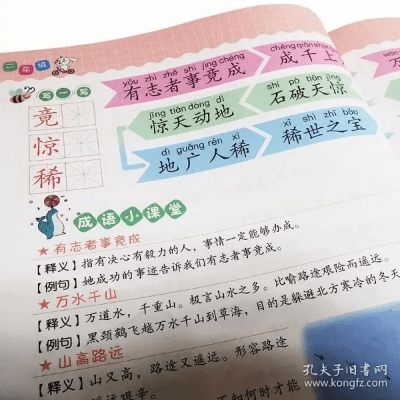 二年级
写一写
竟
惊
稀
yǒu zhì zhě shì jìng chéng
有志者事竟成
chéng qiān shàng
成千上
万
jīng tiān dòng dì
惊天动地
shí pò tiān jīng
石破天惊
dì guǎng rén xī
地广人稀
xī shì zhī bǎo
稀世之宝
成语小课堂
★有志者事竟成
【释义】指有决心有毅力的人，事情一定能够办成。
【例句】她成功的事迹告诉我们有志者事竟成。
★万水千山
【释义】万道水，千重山。极言山水之多。比喻路途艰险而遥远。
【例句】黑颈鹤飞越万水千山到草海，目的是躲避北方寒冷的冬天
★山高路远
【释义】山又高，路途又遥远。形容路途
远艰辛。
不知何时才能
孔夫子旧书网
www.kongfz.com